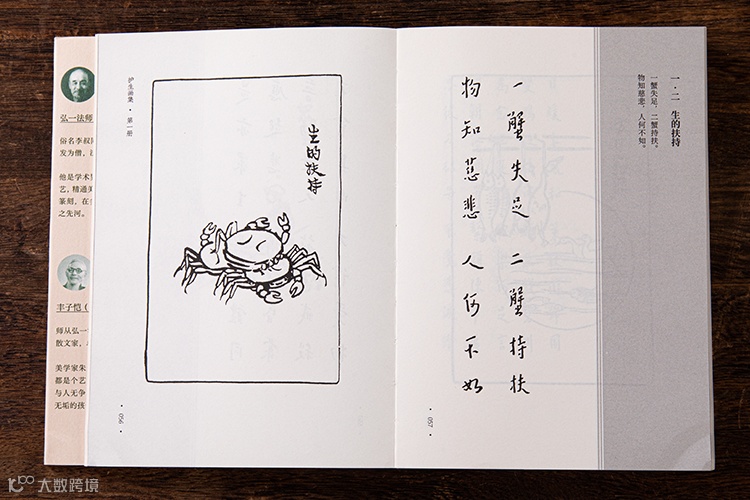 弘一法师
俗名李叔
发为僧，
他是学术
艺，精通
篆刻，在
之先河。
丰子恺（
师从弘一
散文家，
美学家朱
都是个艺
与人无争
无垢的孩
护生画集·第一册
生的扶持
·056·
一蟹失足 二蟹持扶
物知慈悲 人何不如
·057·
一·二 生的扶持
一蟹失足，二蟹持扶。
物知慈悲，人何不如。
大数跨境